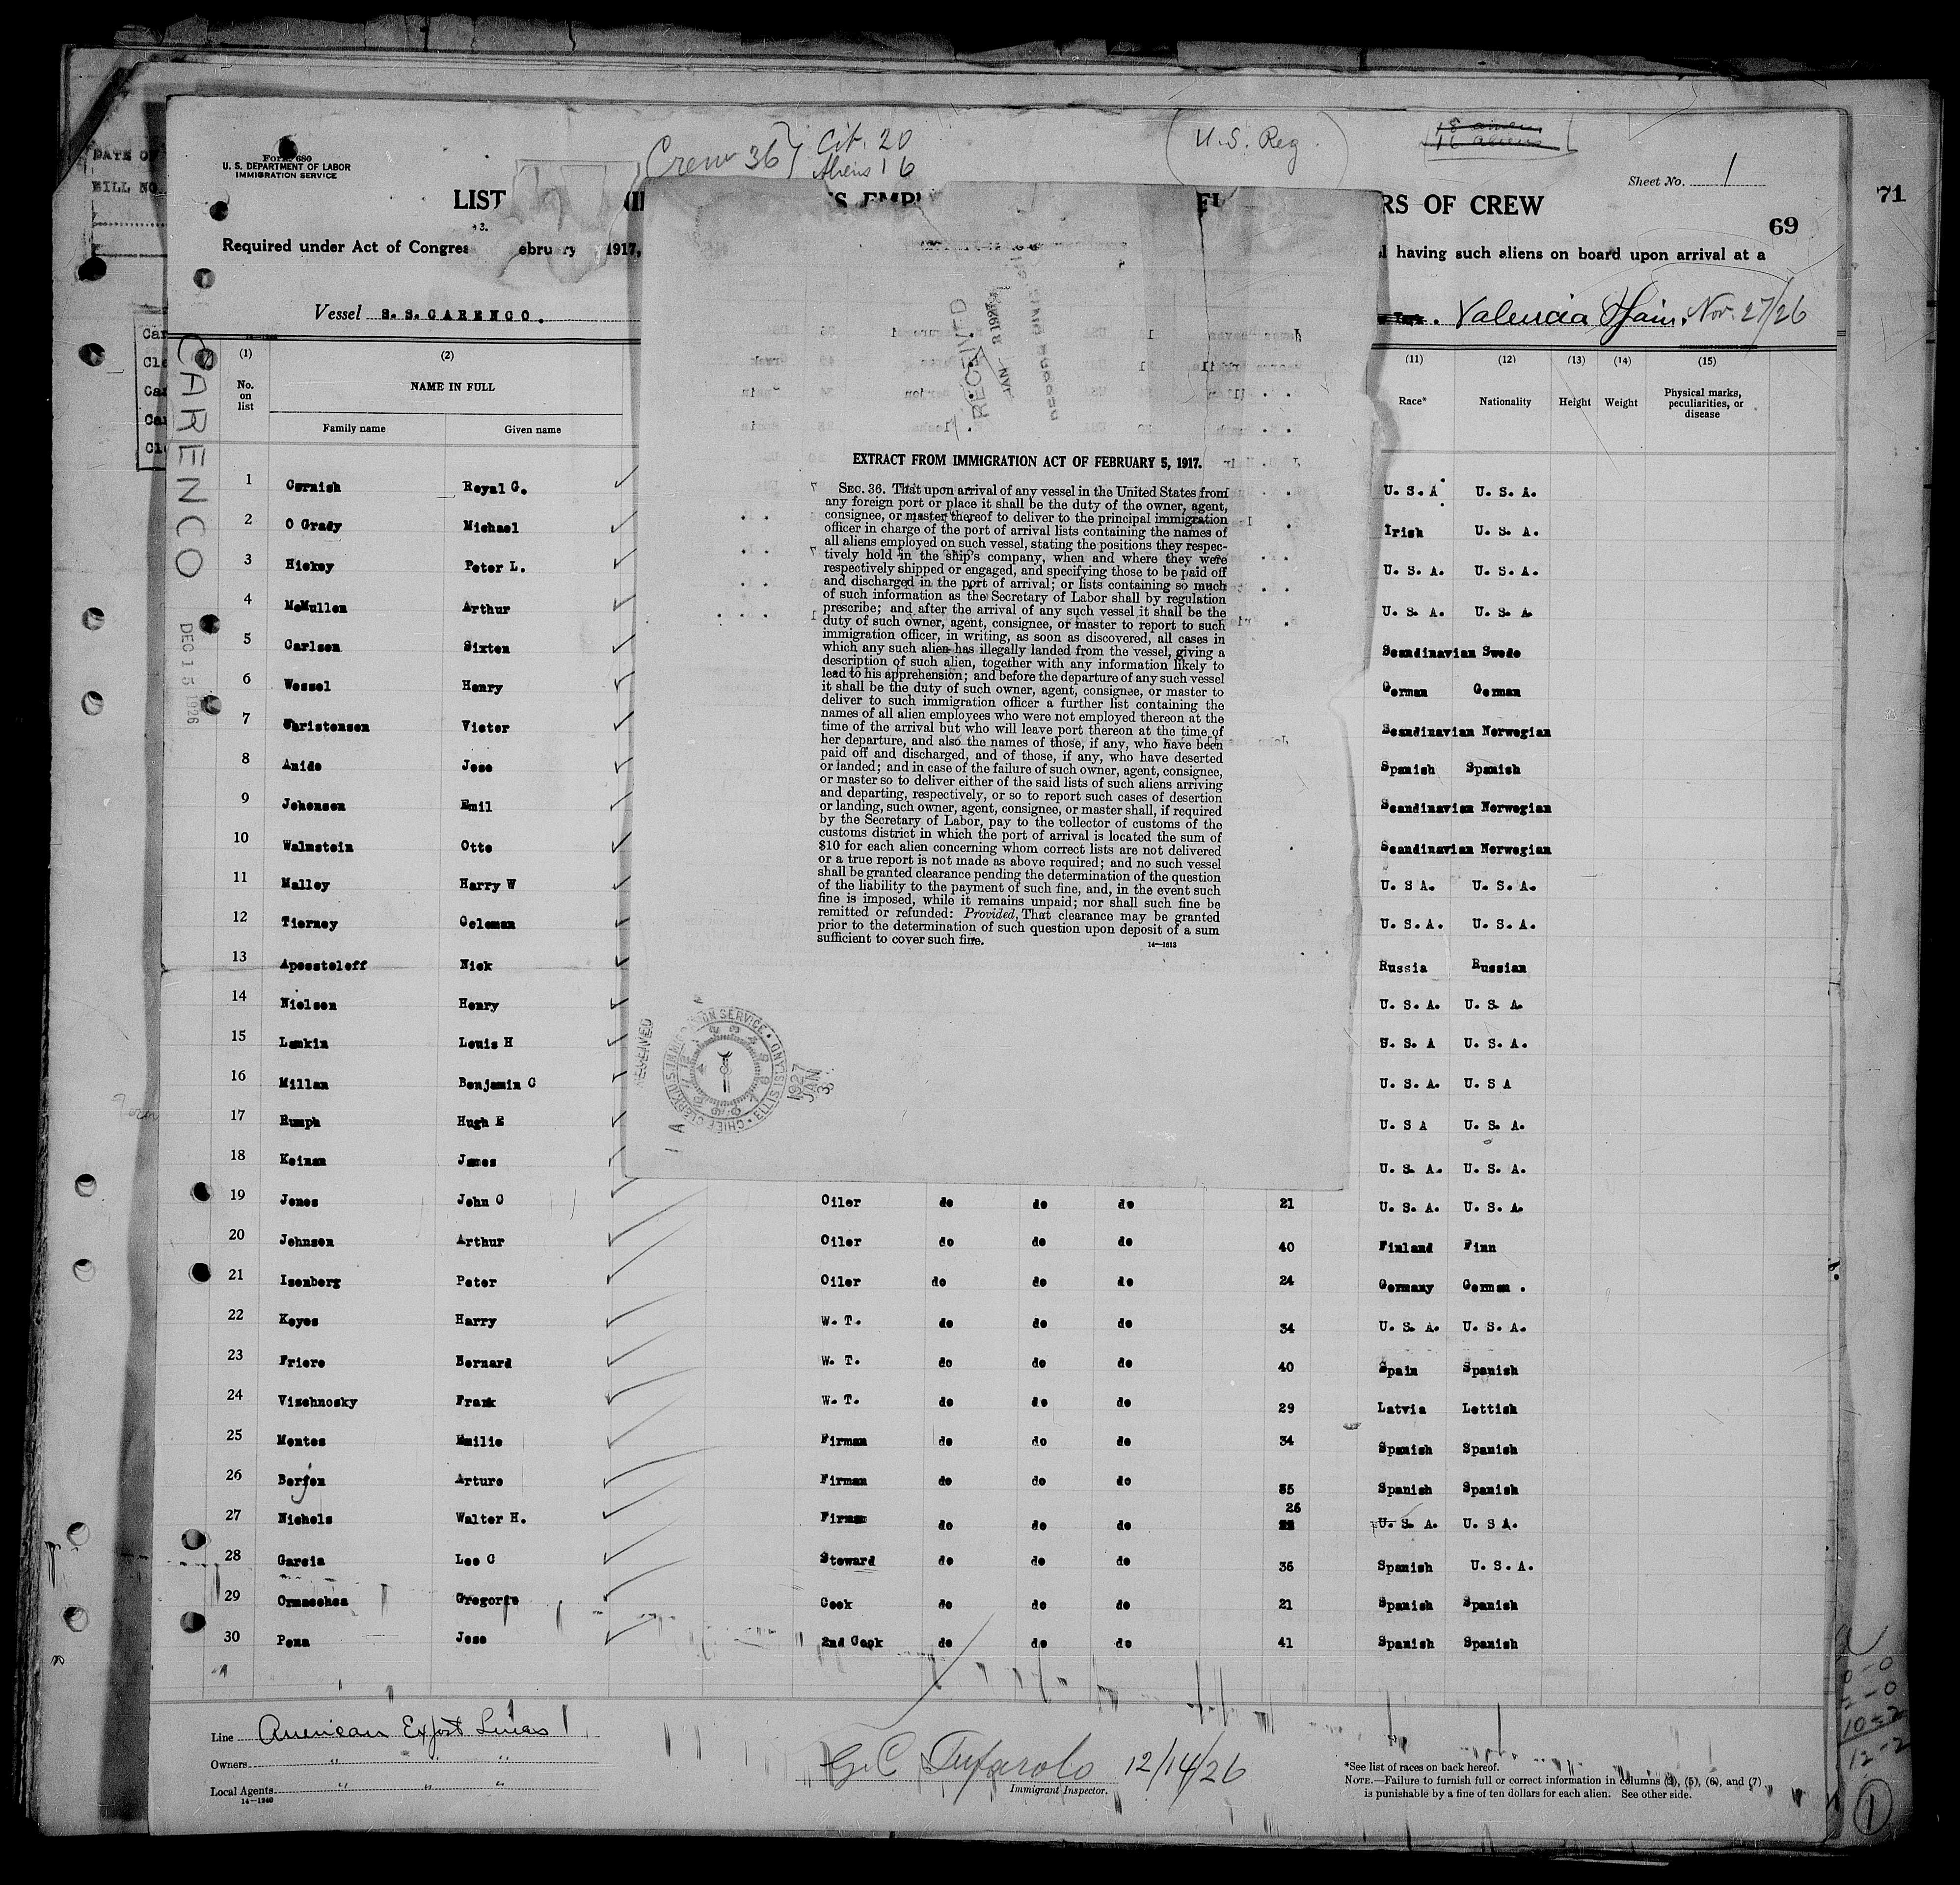 71
DATE OF
BILL NO.
Form 680
U. S. DEPARTMENT OF LABOR
IMMIGRATION SERVICE
Crew 36 Cit. 20
Aliens 16
(U.S. Reg.)
16 aliens
Sheet No. 1
LIST RS OF CREW
69
Required under Act of Congress ebruary 1917, having such aliens on board upon arrival at a
Vessel S.S. CARENCO. Valencia Spain, Nov. 27/26
CARENCO
DEC 15 1926
(1) (2) (11) (12) (13) (14) (15)
No. on list NAME IN FULL Race* Nationality Height Weight Physical marks, peculiarities, or disease
Family name Given name
RECEIVED
JAN - 8 1927
EXTRACT FROM IMMIGRATION ACT OF FEBRUARY 5, 1917.
SEC. 36. That upon arrival of any vessel in the United States from
any foreign port or place it shall be the duty of the owner, agent,
consignee, or master thereof to deliver to the principal immigration
officer in charge of the port of arrival lists containing the names of
all aliens employed on such vessel, stating the positions they respec-
tively hold in the ship's company, when and where they were
respectively shipped or engaged, and specifying those to be paid off
and discharged in the port of arrival; or lists containing so much
of such information as the Secretary of Labor shall by regulation
prescribe; and after the arrival of any such vessel it shall be the
duty of such owner, agent, consignee, or master to report to such
immigration officer, in writing, as soon as discovered, all cases in
which any such alien has illegally landed from the vessel, giving a
description of such alien, together with any information likely to
lead to his apprehension; and before the departure of any such vessel
it shall be the duty of such owner, agent, consignee, or master to
deliver to such immigration officer a further list containing the
names of all alien employees who were not employed thereon at the
time of the arrival but who will leave port thereon at the time of
her departure, and also the names of those, if any, who have been
paid off and discharged, and of those, if any, who have deserted
or landed; and in case of the failure of such owner, agent, consignee,
or master so to deliver either of the said lists of such aliens arriving
and departing, respectively, or so to report such cases of desertion
or landing, such owner, agent, consignee, or master shall, if required
by the Secretary of Labor, pay to the collector of customs of the
customs district in which the port of arrival is located the sum of
$10 for each alien concerning whom correct lists are not delivered
or a true report is not made as above required; and no such vessel
shall be granted clearance pending the determination of the question
of the liability to the payment of such fine, and, in the event such
fine is imposed, while it remains unpaid; nor shall such fine be
remitted or refunded: Provided, That clearance may be granted
prior to the determination of such question upon deposit of a sum
sufficient to cover such fine.
14—1613
RECEIVED
CHIEF CLERK U.S. IMMIGRATION SERVICE • ELLIS ISLAND
1927 JAN 3
1 Cornish Royal G. U. S. A U. S. A.
2 O Grady Michael Irish U. S. A.
3 Hickey Peter L. U. S. A. U. S. A.
4 McMullen Arthur U. S. A. U. S. A
5 Carlson Sixten Scandinavian Swede
6 Wessel Henry German German
7 Christensen Victor Scandinavian Norwegian
8 Anido Jose Spanish Spanish
9 Johansen Emil Scandinavian Norwegian
10 Walmstein Otto Scandinavian Norwegian
11 Malley Harry W U. S A. U. S. A.
12 Tierney Coleman U. S. A. U. S. A.
13 Aposstoleff Nick Russia Russian
14 Nielsen Henry U. S. A. U. S. A.
15 Lamkin Louis H U. S. A U. S. A.
16 Millan Benjamin C U. S. A. U. S A
17 Rumph Hugh E U. S A U. S. A.
18 Keinan James U. S. A. U. S. A.
19 Jones John C Oiler do do do 21 U. S. A. U. S. A.
20 Johnson Arthur Oiler do do do 40 Finland Finn
21 Isenberg Peter Oiler do do do 24 Germany German .
22 Keyes Harry W. T. do do do 34 U. S. A. U. S. A.
23 Friere Bernard W. T. do do do 40 Spain Spanish
24 Visehnosky Frank W. T. do do do 29 Latvia Lettish
25 Montes Emilio Firman do do do 34 Spanish Spanish
26 Berjon Arturo Firman do do do 35 Spanish Spanish
27 Nichols Walter H. Firman do do do 26 U. S. A. U. S A.
28 Garcia Leo C Steward do do do 36 Spanish U. S. A.
29 Ormaechea Gregorio Cook do do do 21 Spanish Spanish
30 Pena Jose 2nd Cook do do do 41 Spanish Spanish
Line American Export Lines
Owners " " "
Local Agents " " "
14—1240
G.C. Tufarolo 12/14/26
Immigrant Inspector.
*See list of races on back hereof.
NOTE.—Failure to furnish full or correct information in columns (3), (5), (6), and (7)
is punishable by a fine of ten dollars for each alien. See other side.
10-2
12-2
1